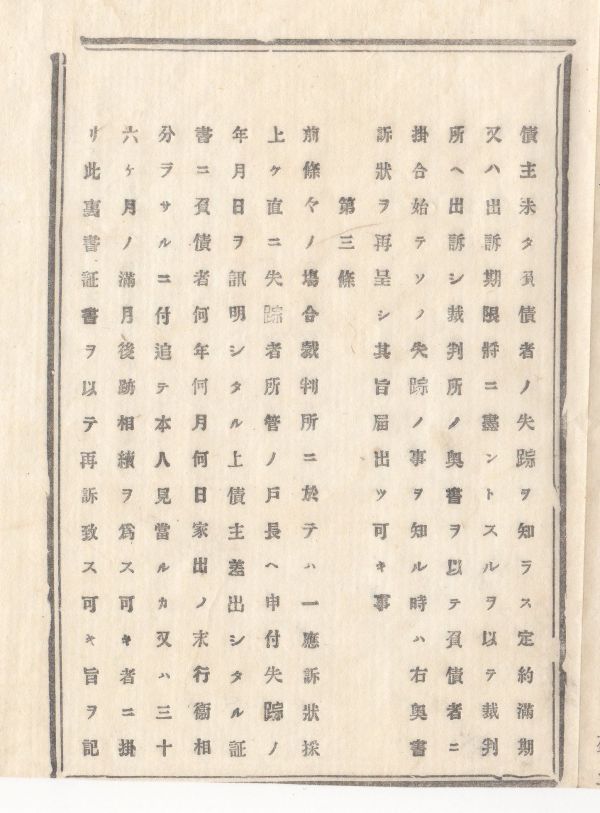 債主未タ負債者ノ失踪ヲ知ラス定約滿期
又ハ出訴期限將ニ盡ントスルヲ以テ裁判
所ヘ出訴シ裁判所ノ奧書ヲ以テ負債者ニ
掛合始テソノ失踪ノ事ヲ知ル時ハ右奧書
訴狀ヲ再呈シ其旨届出ツ可キ事
第三條
前條々ノ塲合裁判所ニ於テハ一應訴狀採
上ケ直ニ失踪者所管ノ戸長ヘ申付失踪ノ
年月日ヲ訊明シタル上債主差出シタル証
書ニ負債者何年何月何日家出ノ末行衞相
分ラサルニ付追テ本人見當ルカ又ハ三十
六ケ月ノ滿月後跡相續ヲ爲ス可キ者ニ掛
リ此裏書証書ヲ以テ再訴致ス可キ旨ヲ記